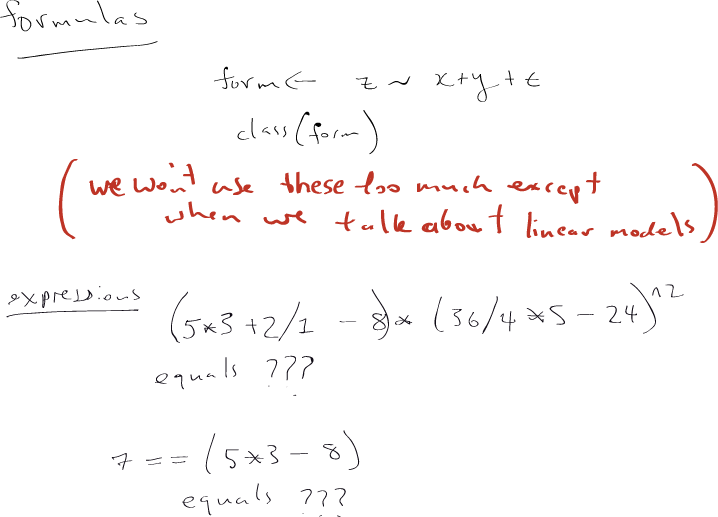 formulas
form <- z ~ x+y+t
class(form)
(we won't use these too much except
when we talk about linear models)
expressions
(5*3+2/1 - 8)* (36/4*5-24)^2
equals ???
7 == (5*3-8)
equals ???